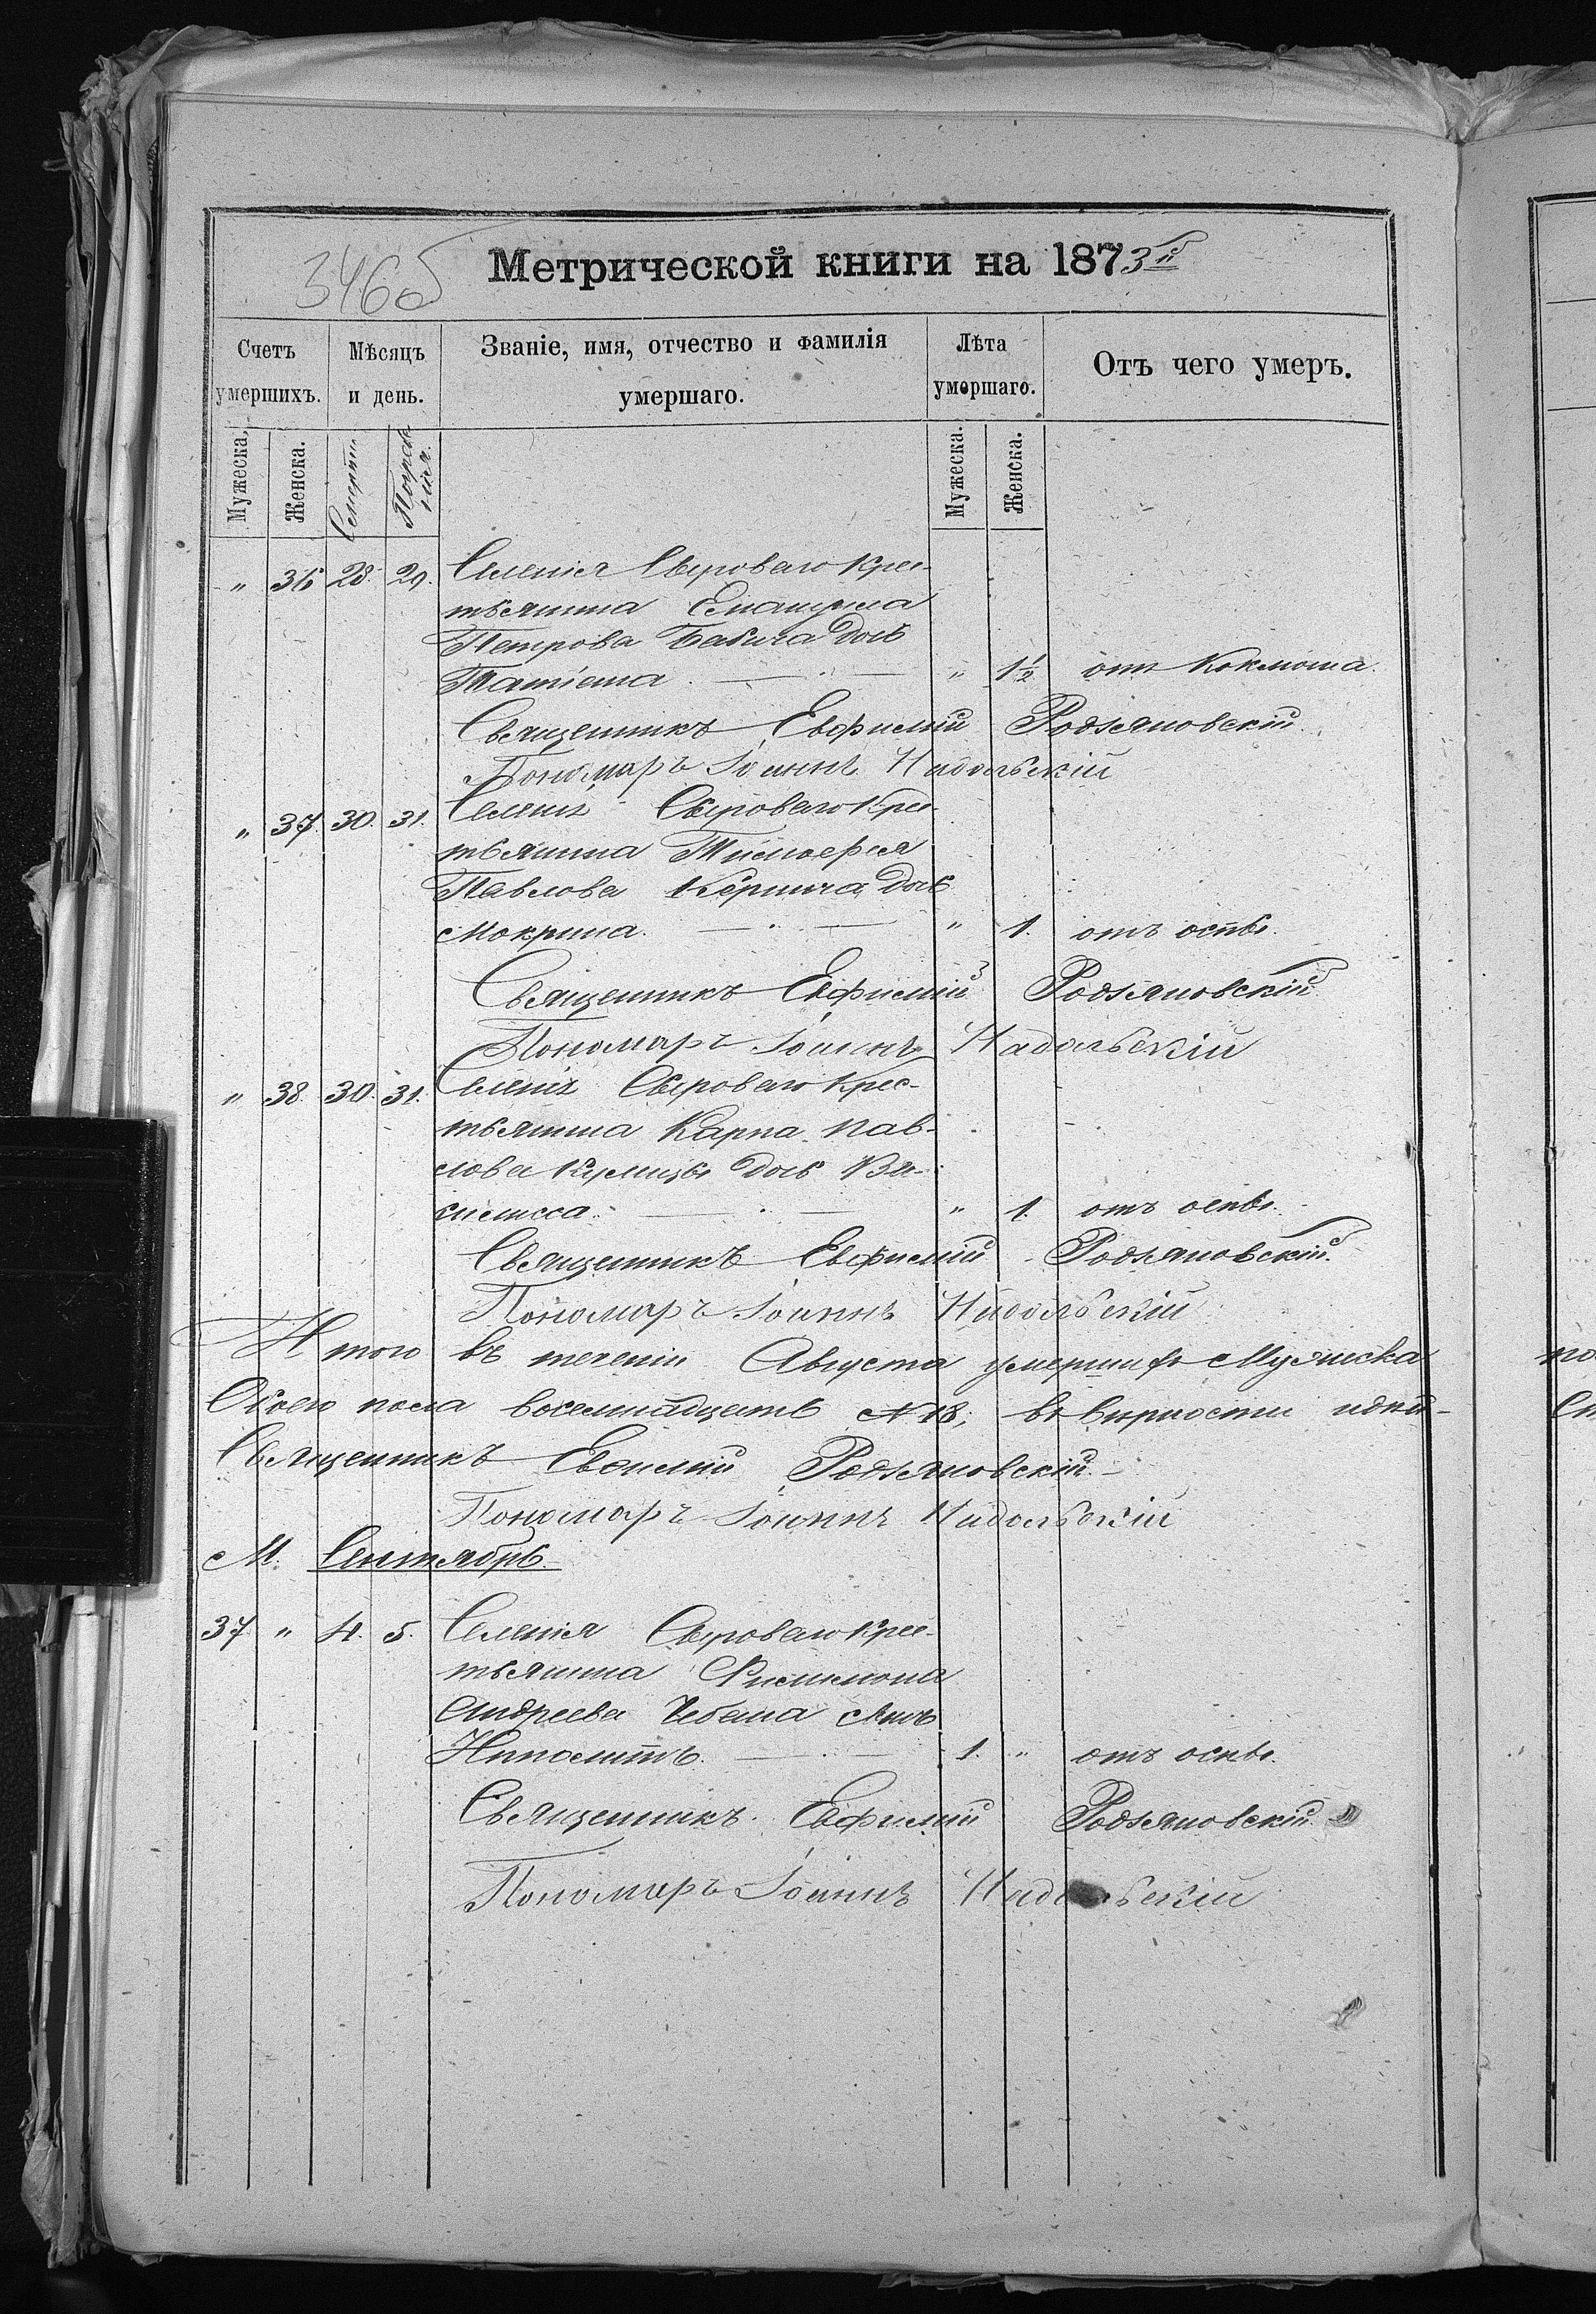 346об
Метрической книги на 1873й
Счетъ умершихъ. Мѣсяцъ и день. Званіе, имя, отчество и фамилія умершаго. Лѣта умершаго. Отъ чего умеръ.
Мужеска, Женска. Смерти Погребенія. Мужеска. Женска.
" 36 28. 29. Селенія Сыроваго Крес-
тьянина
Петрова Бабича дочь
Татіана. " 1½ отъ Коклюша.
Священникъ Евфимій Родзяновскій.
Пономарь Іоаннъ Надольскій
" 37. 30. 31. Селенія Сыроваго Крес-
тьянина Тимофея
Павлова дочь
Макрина. " 1. отъ оспы.
Священникъ Евфимій Родзяновскій
Пономарь Іоаннъ Надольскій
" 38. 30. 31. Селенія Сыроваго Крес-
тьянина Карпа Пав-
лова дочь Ва-
силисса. " 1. отъ оспы.
Священникъ Евфимій Родзяновскій.
Пономарь Іоаннъ Надольскій
Итого въ теченіи Августа умершихъ Мужеска
Обоего пола восемнадцать № 18, въ вѣрности
Священникъ Евфимій Родзяновскій.
Пономарь Іоаннъ Надольскій
М. Сентябрь.
37. " 4. 5. Селенія Сыроваго Крес-
тьянина Филимона
Андреева Чебана сынъ
Ипполитъ. 1. " отъ оспы.
Священникъ Евфимій Родзяновскій
Пономарь Іоаннъ Надольскій